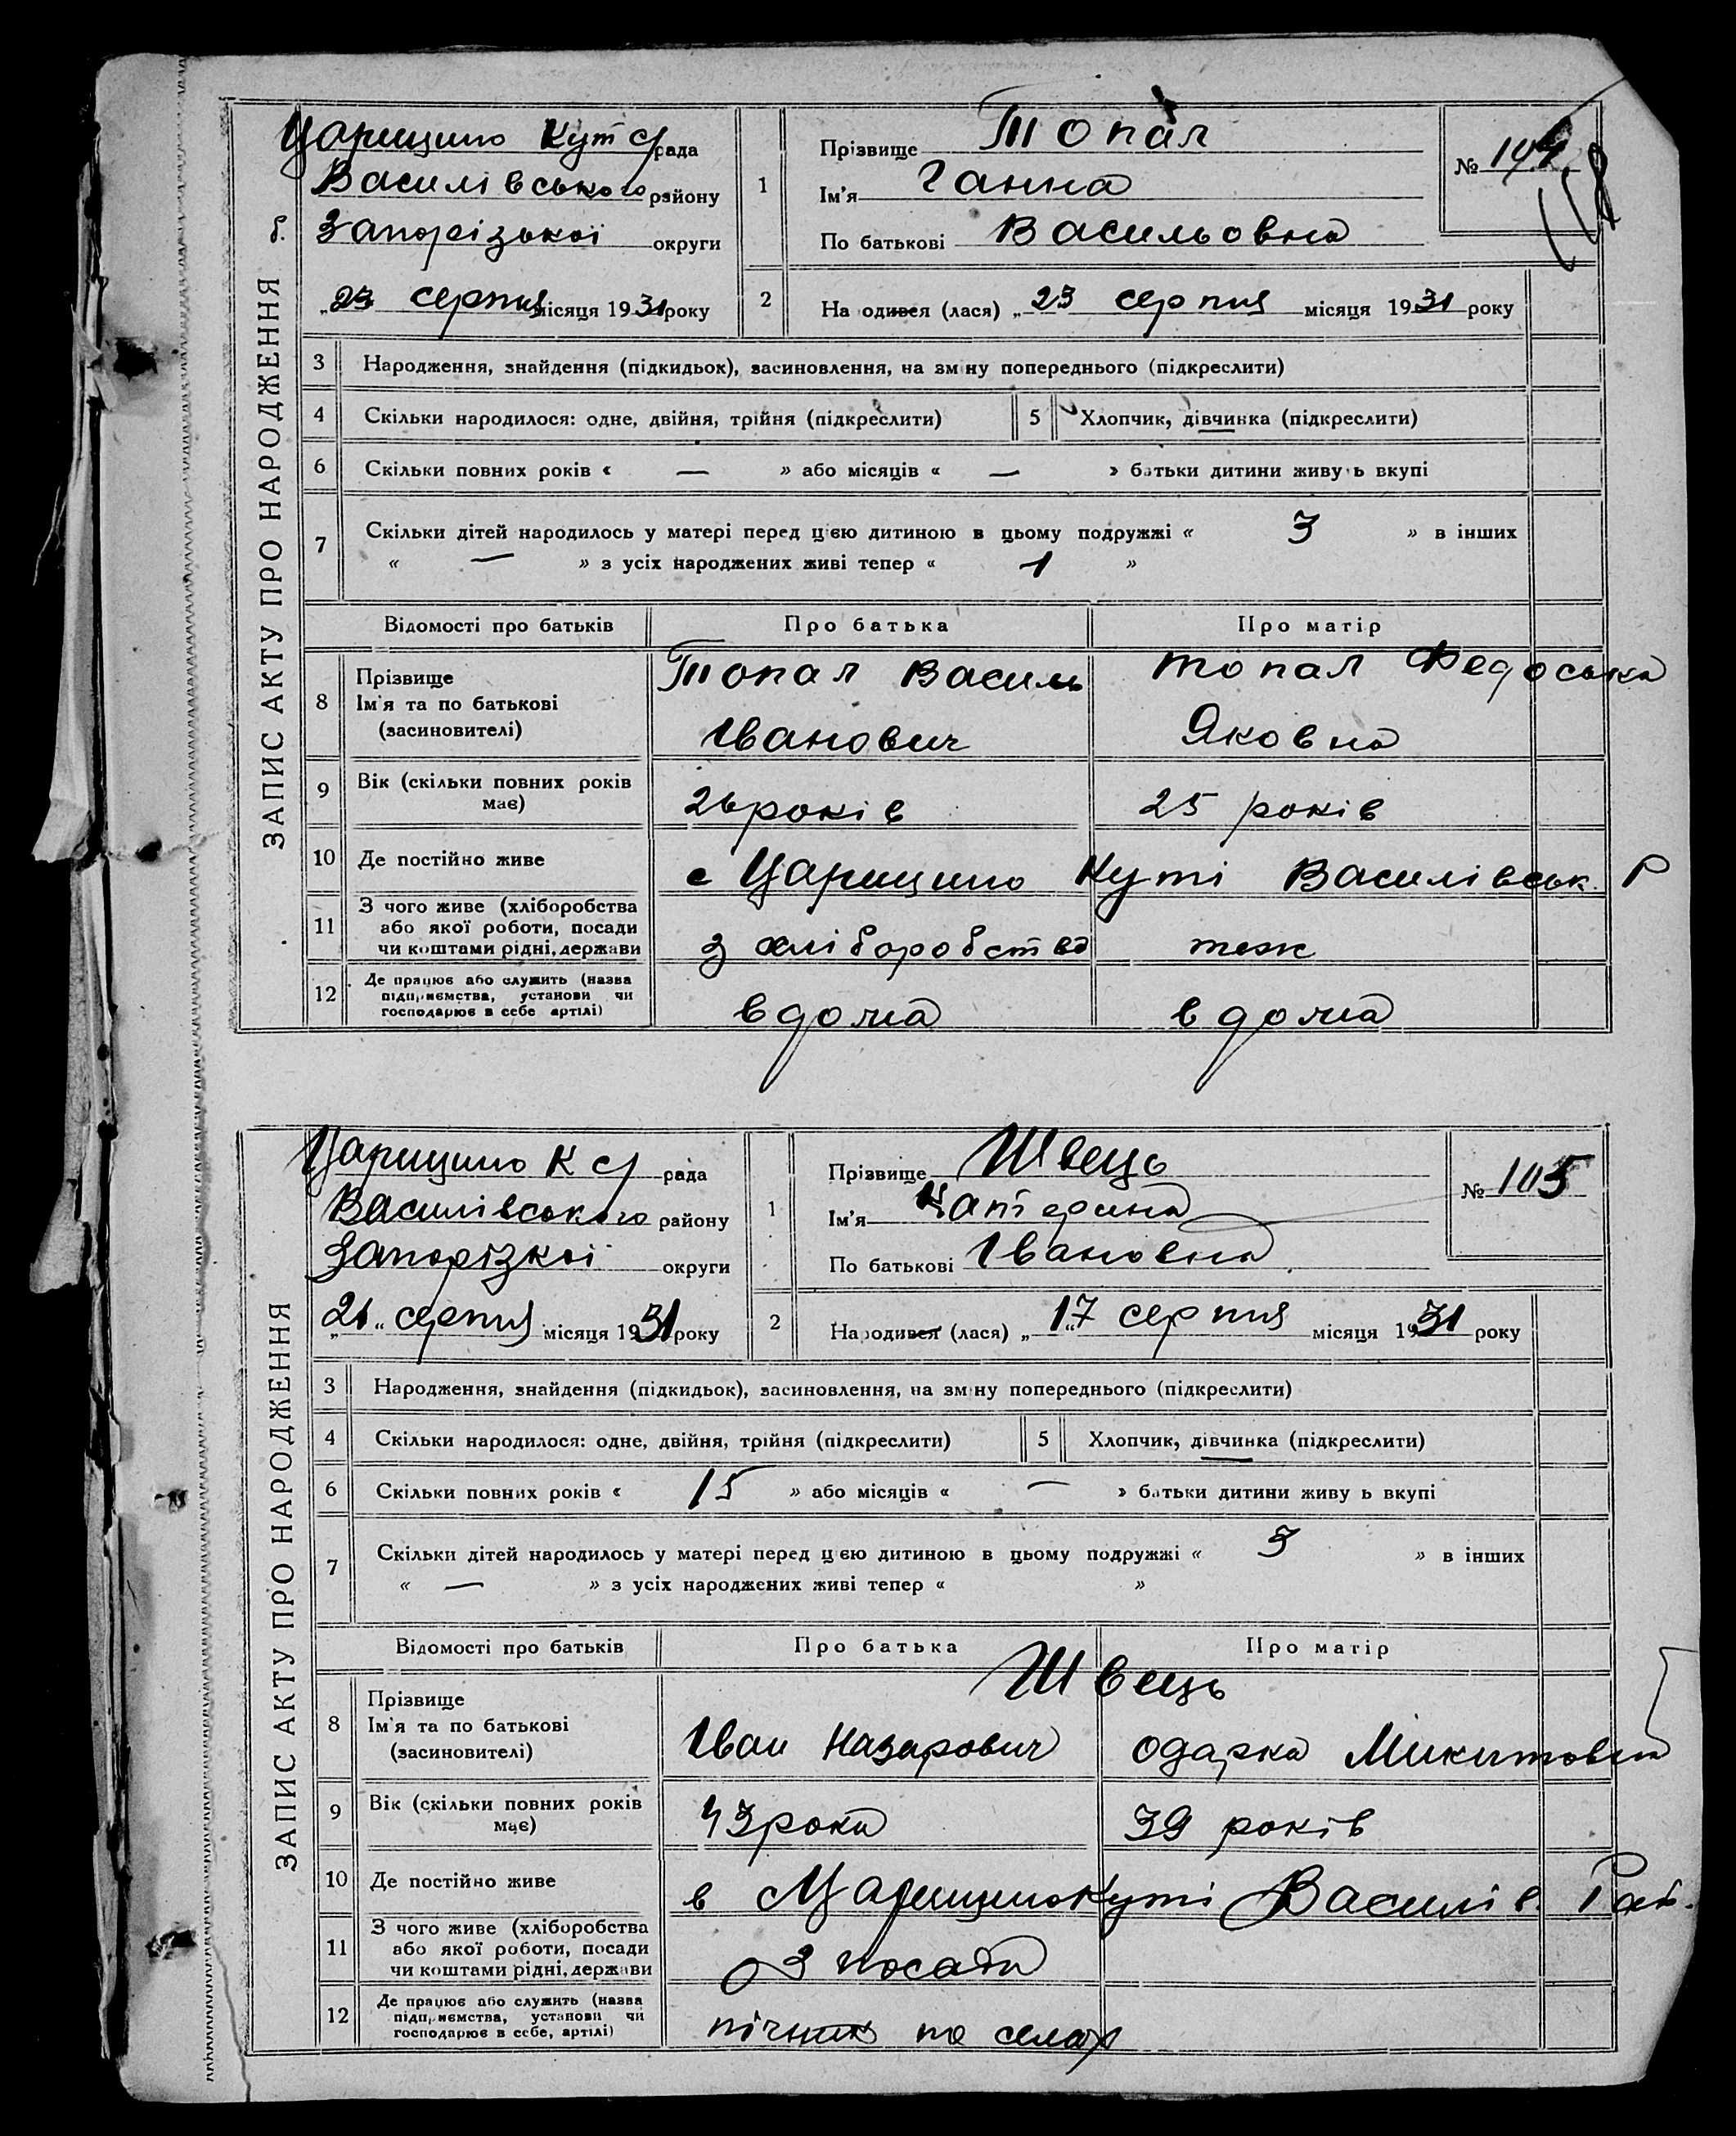 ЗАПИС АКТУ ПРО НАРОДЖЕННЯ
Царицино Кут с/рада
Василівського району
Запорізької округи
„23 серпня місяця 1931 року
1 Прізвище Топал
Ім'я Ганна
По батькові Васильовна
№ 104
118
2 На одився (лася) „23 серпня місяця 1931 року
3 Народження, знайдення (підкидьок), засиновлення, на зміну попереднього (підкреслити)
4 Скільки народилося: одне, двійня, трійня (підкреслити) 5 Хлопчик, дівчинка (підкреслити)
6 Скільки повних років « — » або місяців « — » батьки дитини живуть вкупі
7 Скільки дітей народилось у матері перед цією дитиною в цьому подружжі « 3 » в інших
« — » з усіх народжених живі тепер « 1 »
Відомості про батьків Про батька Про матір
8 Прізвище Ім'я та по батькові (засиновителі) Топал Василь Топал Федоська
Іванович Яковна
9 Вік (скільки повних років має) 26 років 25 років
10 Де постійно живе с Царицино Куті Василівськ. Р
11 З чого живе (хліборобства або якої роботи, посади чи коштами рідні, держави з хліборобства теж
12 Де працює або служить (назва підприємства, установи чи господарює в себе артілі) вдома вдома
ЗАПИС АКТУ ПРО НАРОДЖЕННЯ
Царицино К с/рада
Василівського району
Запорізкої округи
„26“ серпня місяця 1931 року
1 Прізвище Швець
Ім'я Катерина
По батькові Івановна
№ 105
2 Народився (лася) „17“ серпня місяця 1931 року
3 Народження, знайдення (підкидьок), засиновлення, на зміну попереднього (підкреслити)
4 Скільки народилося: одне, двійня, трійня (підкреслити) 5 Хлопчик, дівчинка (підкреслити)
6 Скільки повних років « 15 » або місяців « — » батьки дитини живу ь вкупі
7 Скільки дітей народилось у матері перед цією дитиною в цьому подружжі « 3 » в інших
« — » з усіх народжених живі тепер « »
Відомості про батьків Про батька Про матір
8 Прізвище Ім'я та по батькові (засиновителі) Швець
Іван Назарович Одарка Микитовна
9 Вік (скільки повних років має) 43 роки 39 років
10 Де постійно живе в Царицинокуті Василів. Рай.
11 З чого живе (хліборобства або якої роботи, посади чи коштами рідні, держави З посади
12 Де працює або служить (назва підприємства, установи чи господарює в себе, артілі) пічник по селах